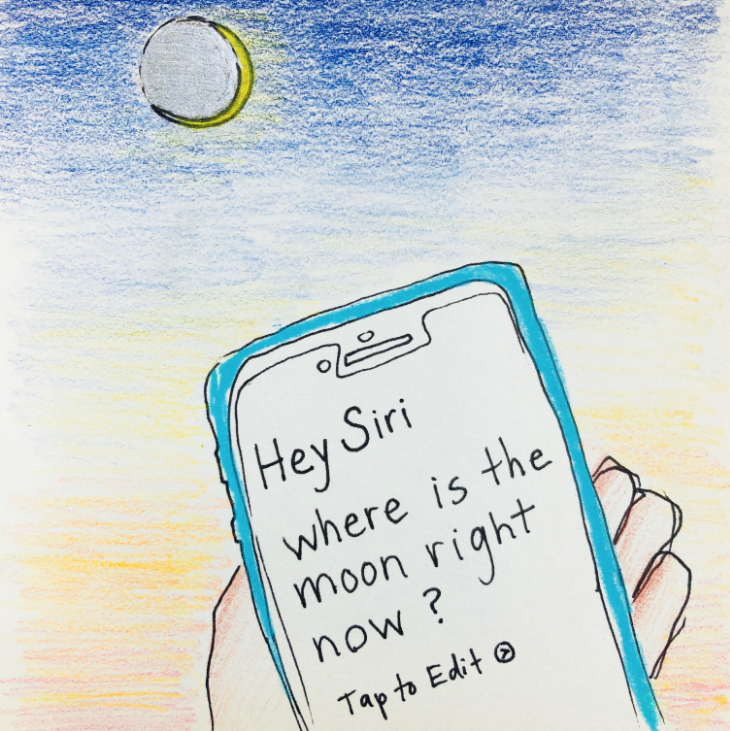 Hey Siri
where is the
moon right
now ?
Tap to Edit